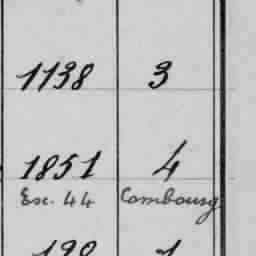 1138 3
1851 4
Esc. 44 Combourg